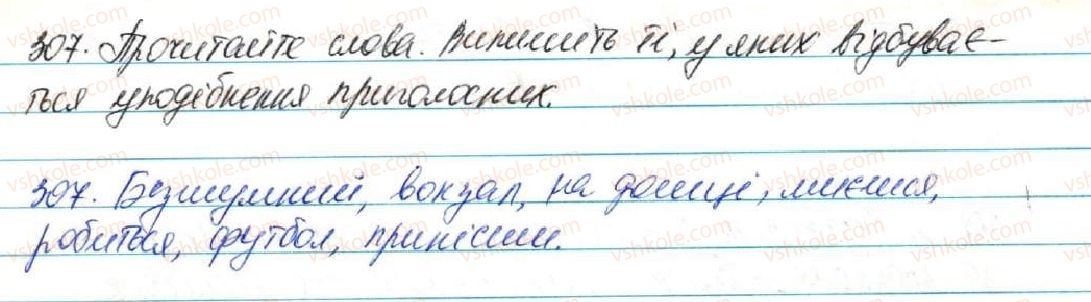 307. Прочитайте слова. Випишіть ті, у яких відбуває-
ться уподібнення приголосних.
307. Безшумний, вокзал, на дошці, миєшся,
робиться, футбол, принісши.